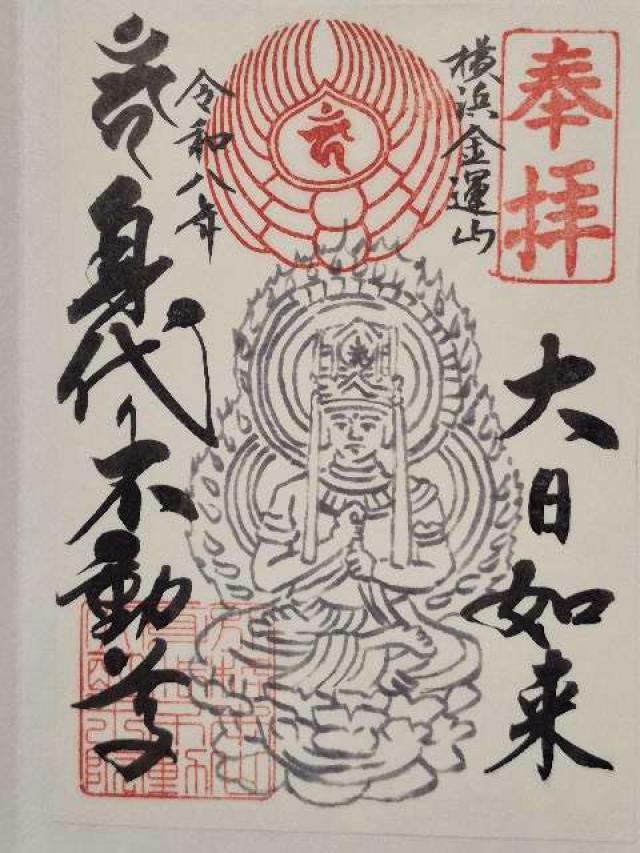 奉拝
横浜金運山
大日如来
令和八年
身代り不動尊